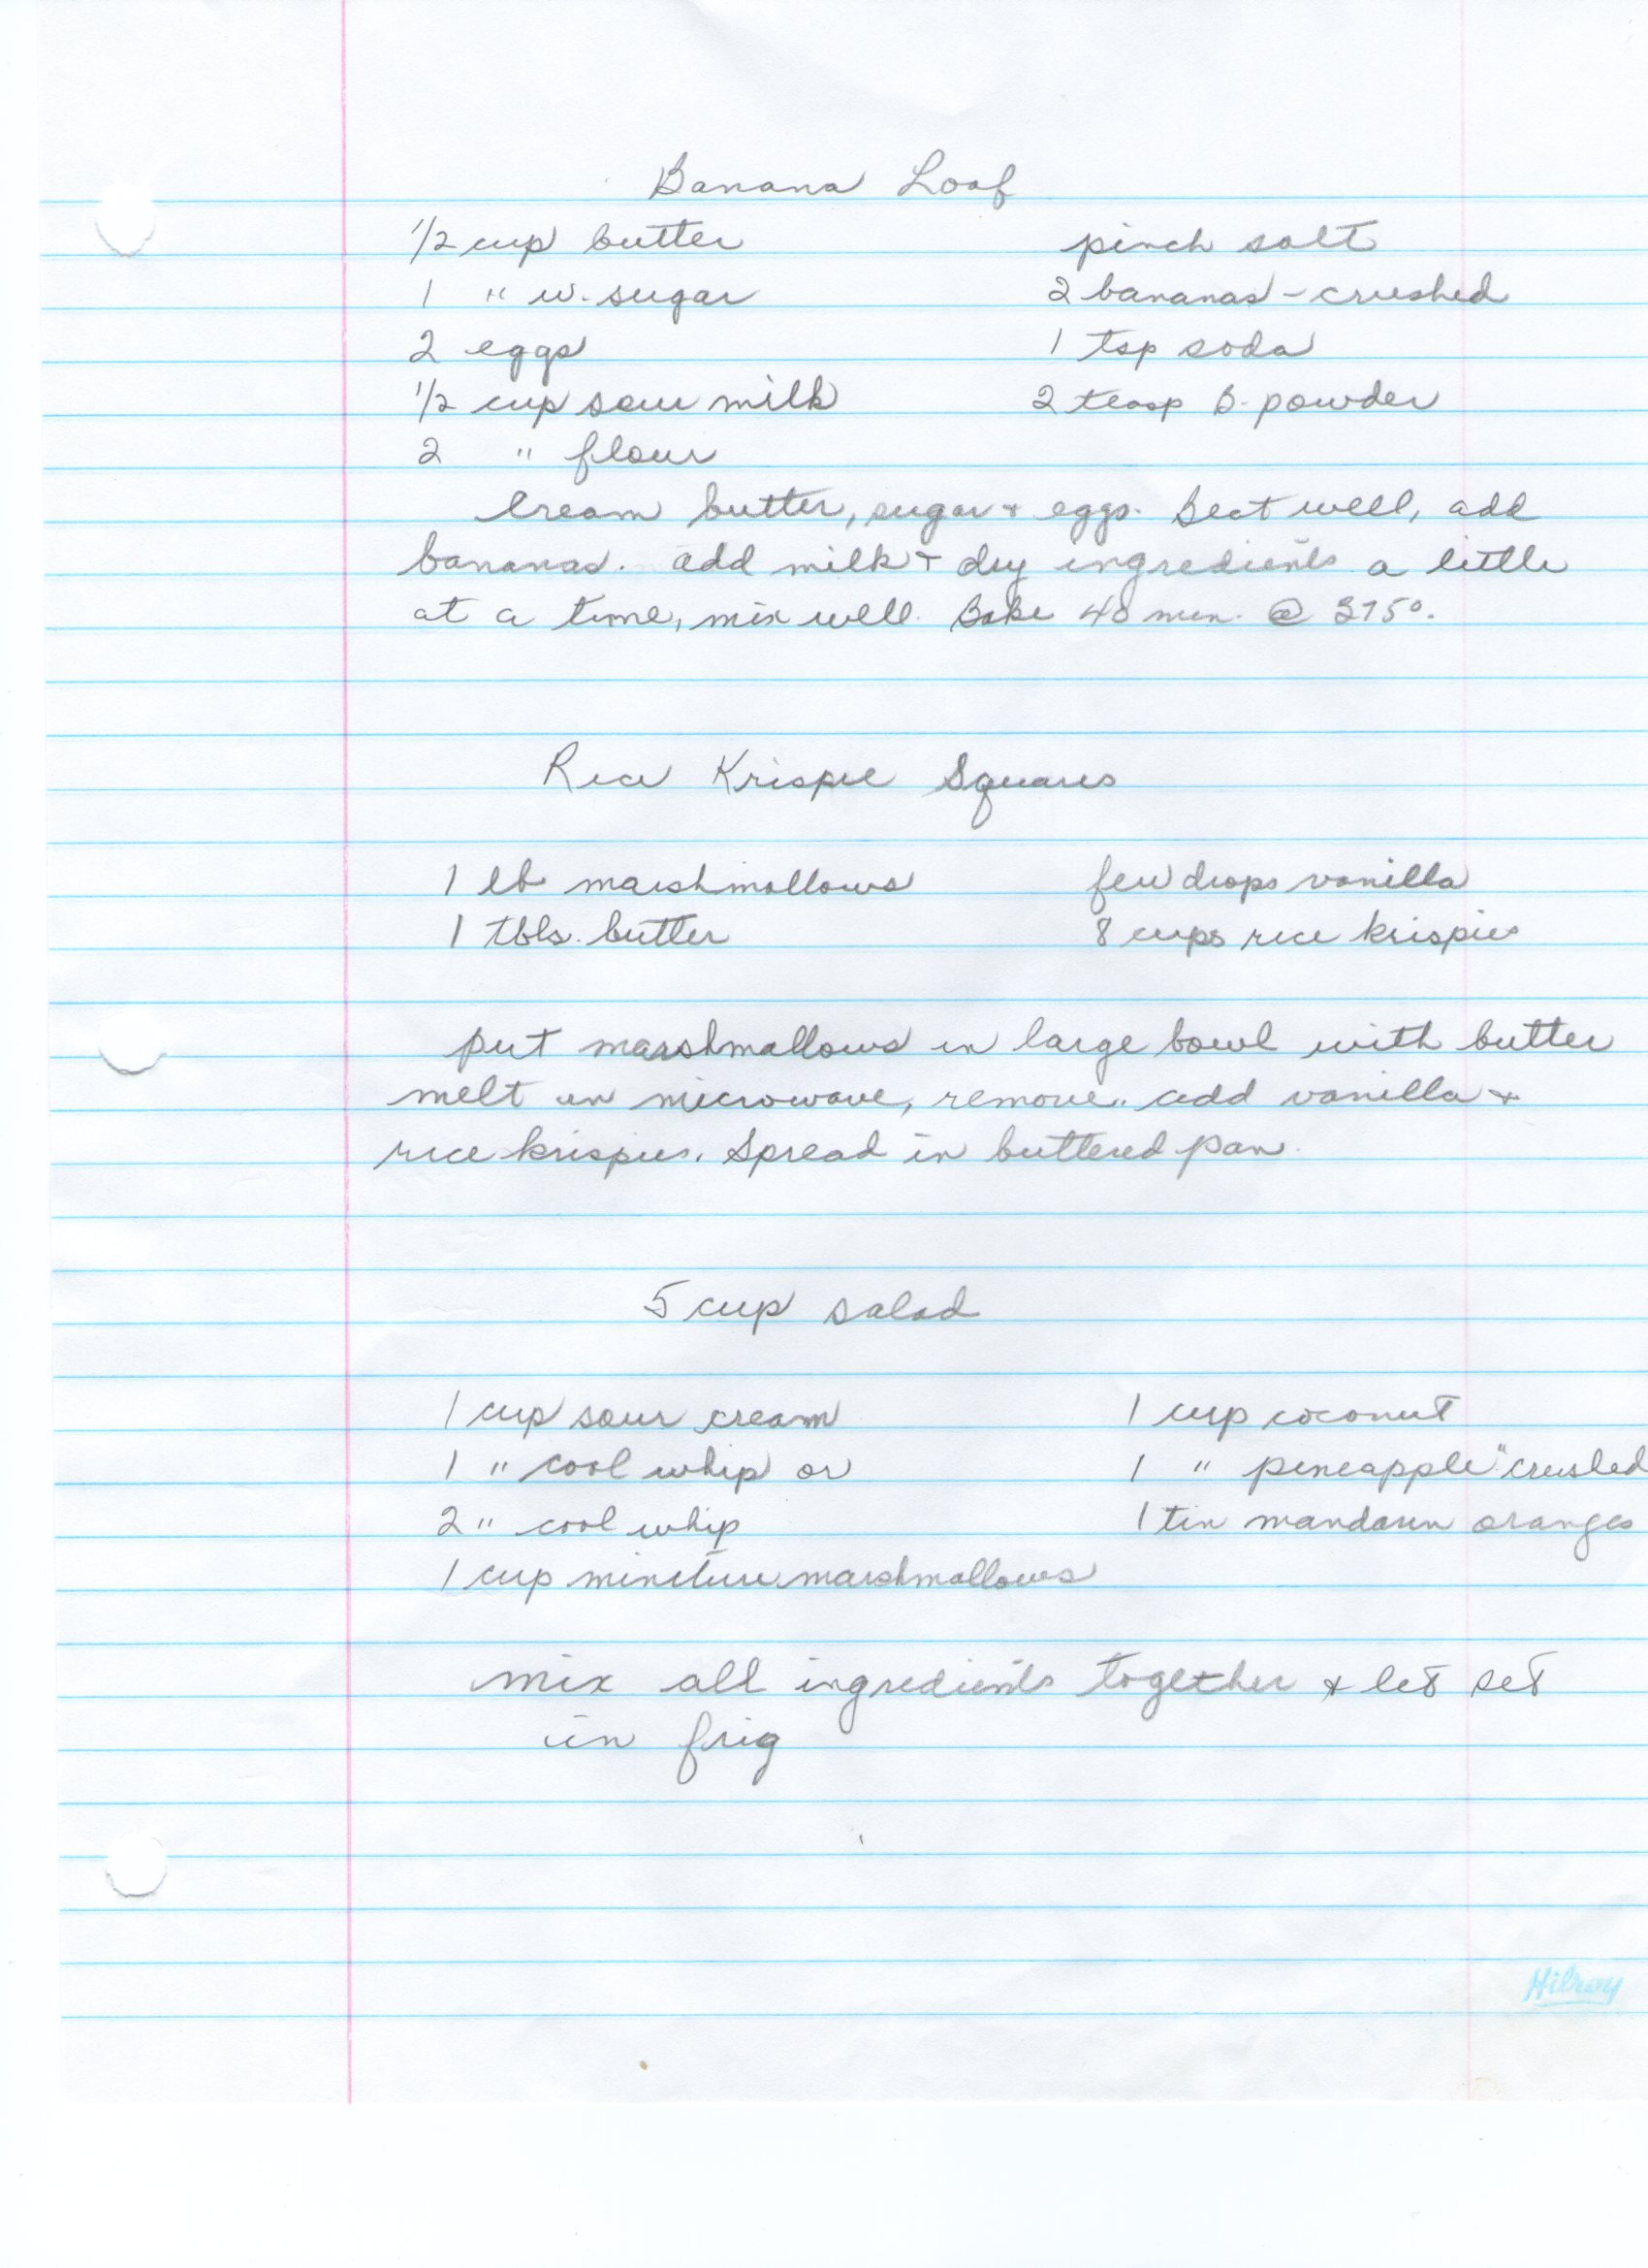 Banana Loaf
1/2 cup butter pinch salt
1 " w. sugar 2 bananas - crushed
2 eggs 1 tsp soda
1/2 cup sour milk 2 teasp B. powder
2 " flour
Cream butter, sugar + eggs. Beat well, add
bananas. add milk + dry ingredients a little
at a time, mix well. Bake 40 min. @ 375°.
Rice Krispie Squares
1 lb marshmallows few drops vanilla
1 tbls. butter 8 cups rice krispies
put marshmallows in large bowl with butter
melt in microwave, remove.. add vanilla +
rice krispies. Spread in buttered pan.
5 cup salad
1 cup sour cream 1 cup coconut
1 " cool whip or 1 " pineapple "crushed
2 " cool whip 1 tin mandarin oranges
1 cup mincture marshmallows
mix all ingredients together + let set
in frig
Hilroy